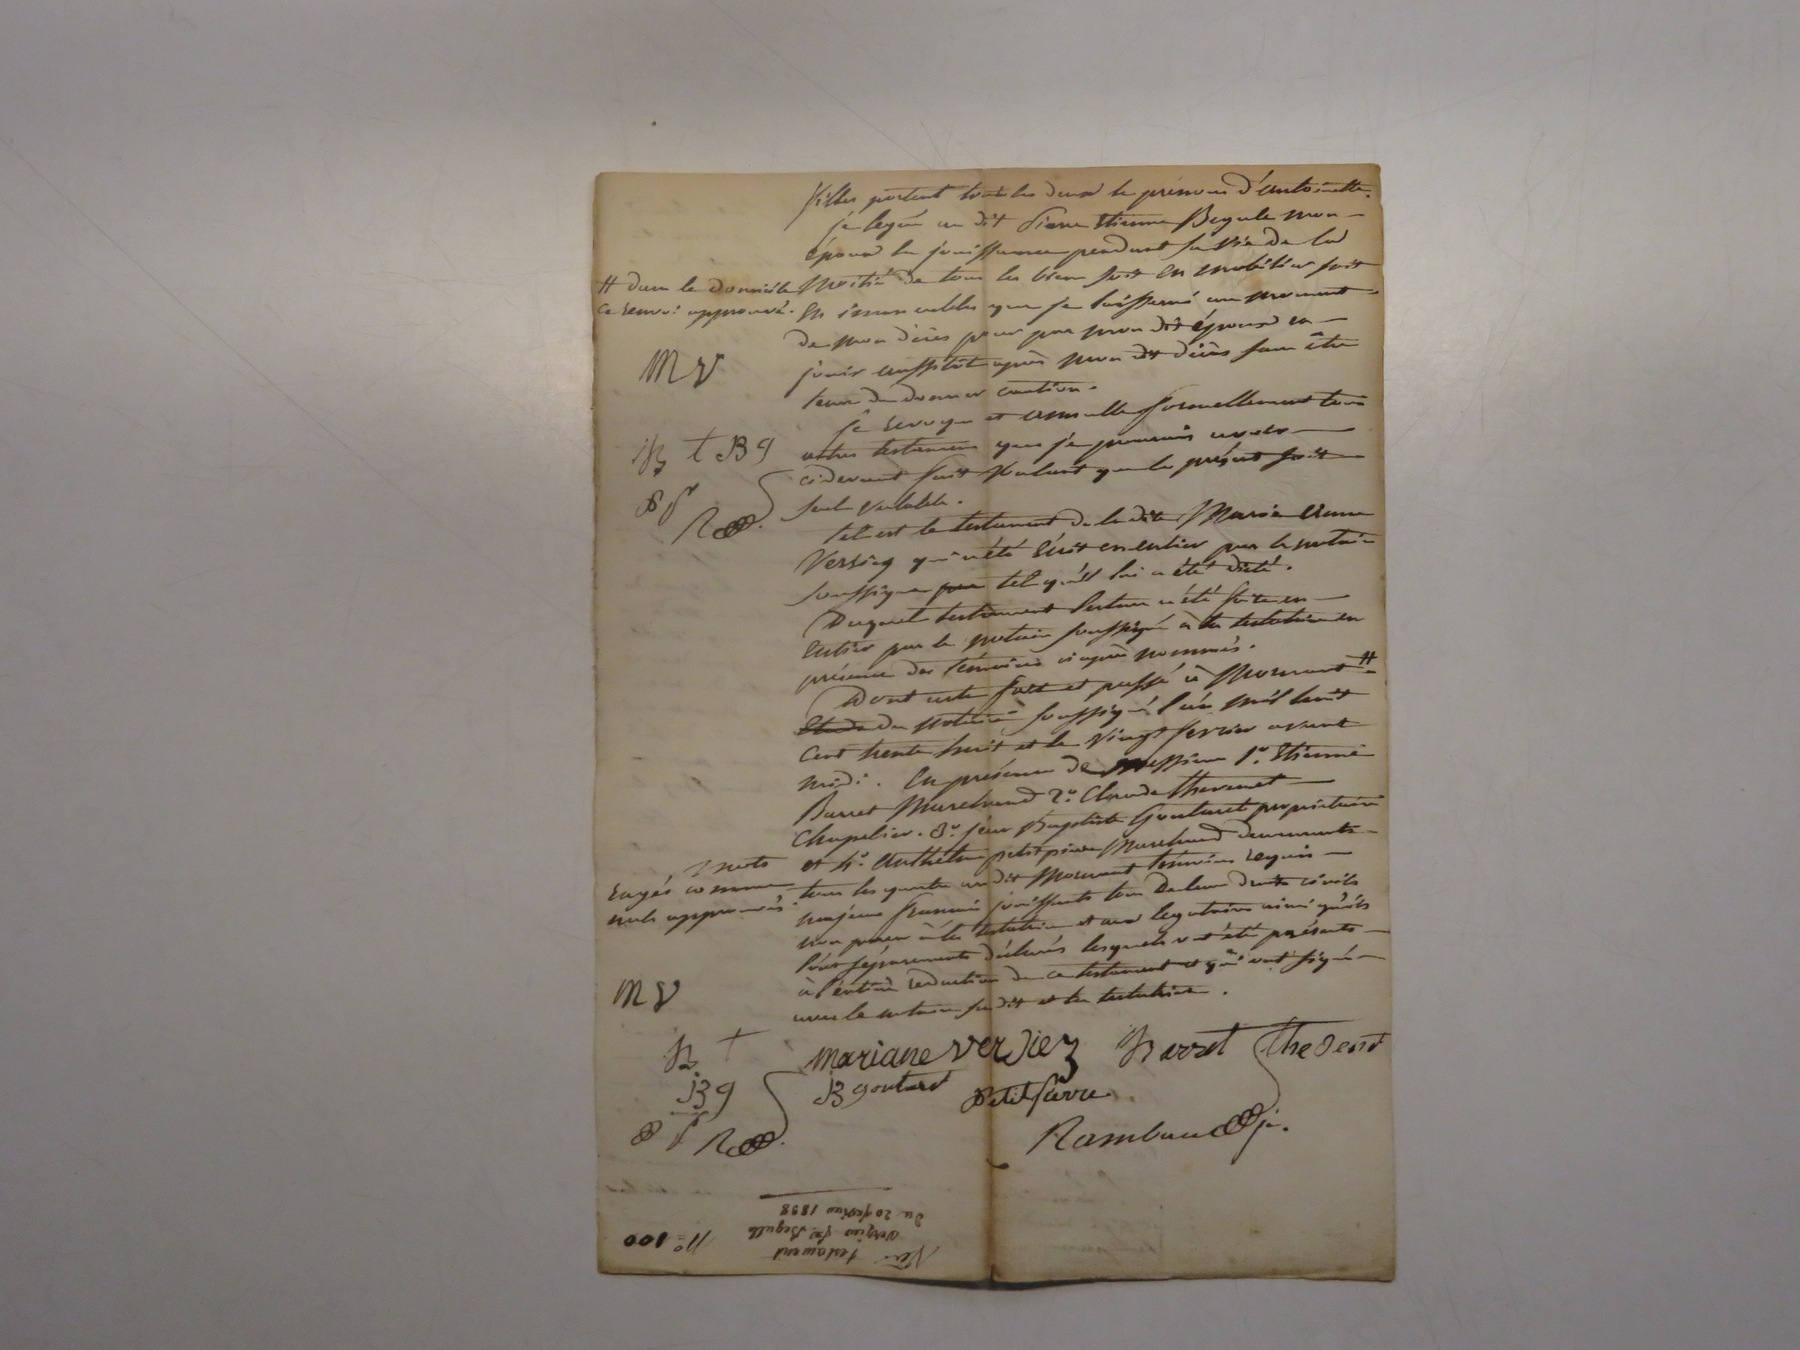 filles portent toutes les deux le prénom d'antoinette.
je legue au dit Pierre Etienne Begule mon
époux la jouissance pendant sa vie de la
moitié de tous les bien soit en mobilier soit
en immeubles que je laisserai au moment
de mon décès pour par mon dit époux en
jouir aussitôt après mon dit décès sans être
tenu de donner caution.
je revoque et annulle formellement tous
autres testaments que je pourrois avoir
cidevant fait voulant que le présent soit
seul valable.
tel est le testament de la dite Marie anne
Verzieg qui a été écrit en entier par le notaire
soussigné par tel qu'il lui a été dicté.
Duquel testament lecture a été faite en
entier par le notaire soussigné à la testatrice en
présence des témoins ciaprès nommés.
Dont acte fait et passé à Mornant #
Etude du notaire soussigné l'an mil huit
cent trente huit et le vingt fevrier avant
midi. En présence de messieurs 1º. Etienne
Barret Marchand 2º. Claude thevenet
Chapelier. 3º. jean Baptiste Goutaret propriétaire
et 4º. Anthelme petitpierre Marchand demeurants
tous les quatre au dit Mornant témoins requis
majeurs francais jouissants tous de leurs droits civils
non parens à la testatrice et aux legataires ainsi qu'ils
l'ont séparément déclarés lesquels ont été présents
à l'entière redaction de ce testament et qui ont signé
avec le notaire susdit et la testatrice.
# dans le domicile
ce renvoi approuvé.
MV
B t BG
PP
R
mots
rayés comme
nuls approuvés.
MV
B t
JBG
PP
R
mariane verziez Barret thevenet
JB goutaret petitpierre
Rambaud jne.
Nº 100
testament
Verzieg fme Begule
du 20 fevrier 1838